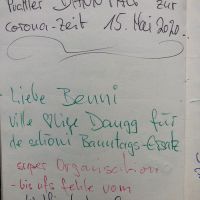 Puchler BANNTAG zur
Corona-Zeit 15. Mai 2020.
- Liebe Benni
ville ♡lige Dangg für
de schöni Banntags-Ersatz
super Organisation
- bis ufs fehle vom